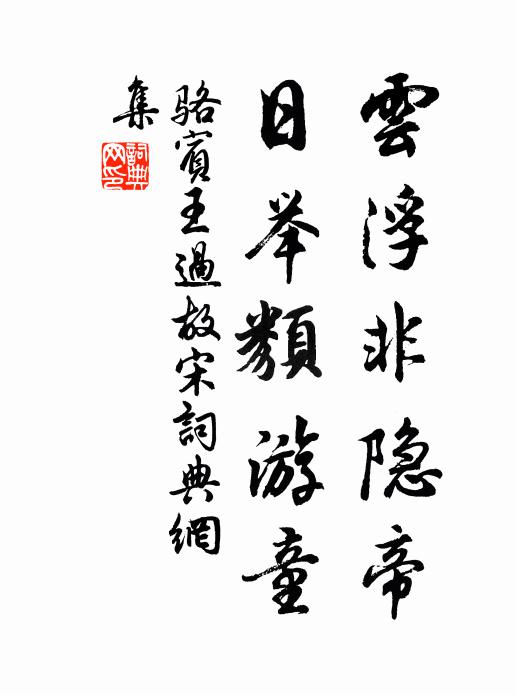 雲浮非隐帝
日举類游童
骆賓王過故宋詞典網
集
詞典
网印